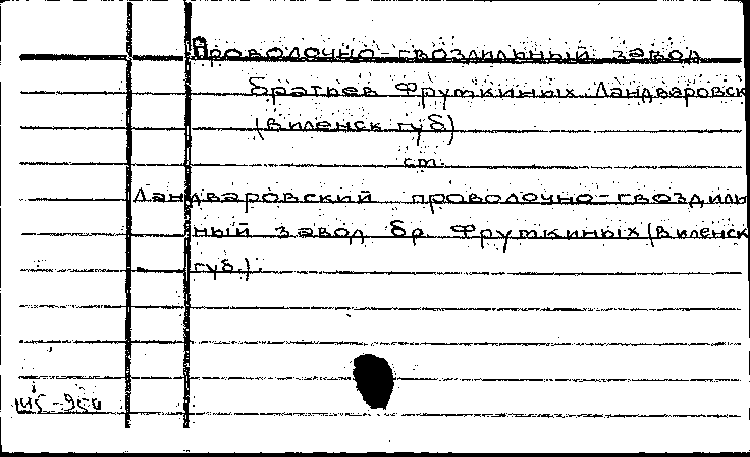 Проволочно-гвоздильный завод
братьев Фруткиных Ландваровск
(Виленск губ)
см.
Ландваровский проволочно-гвоздиль
ный завод бр. Фруткиных (Виленск
губ.).